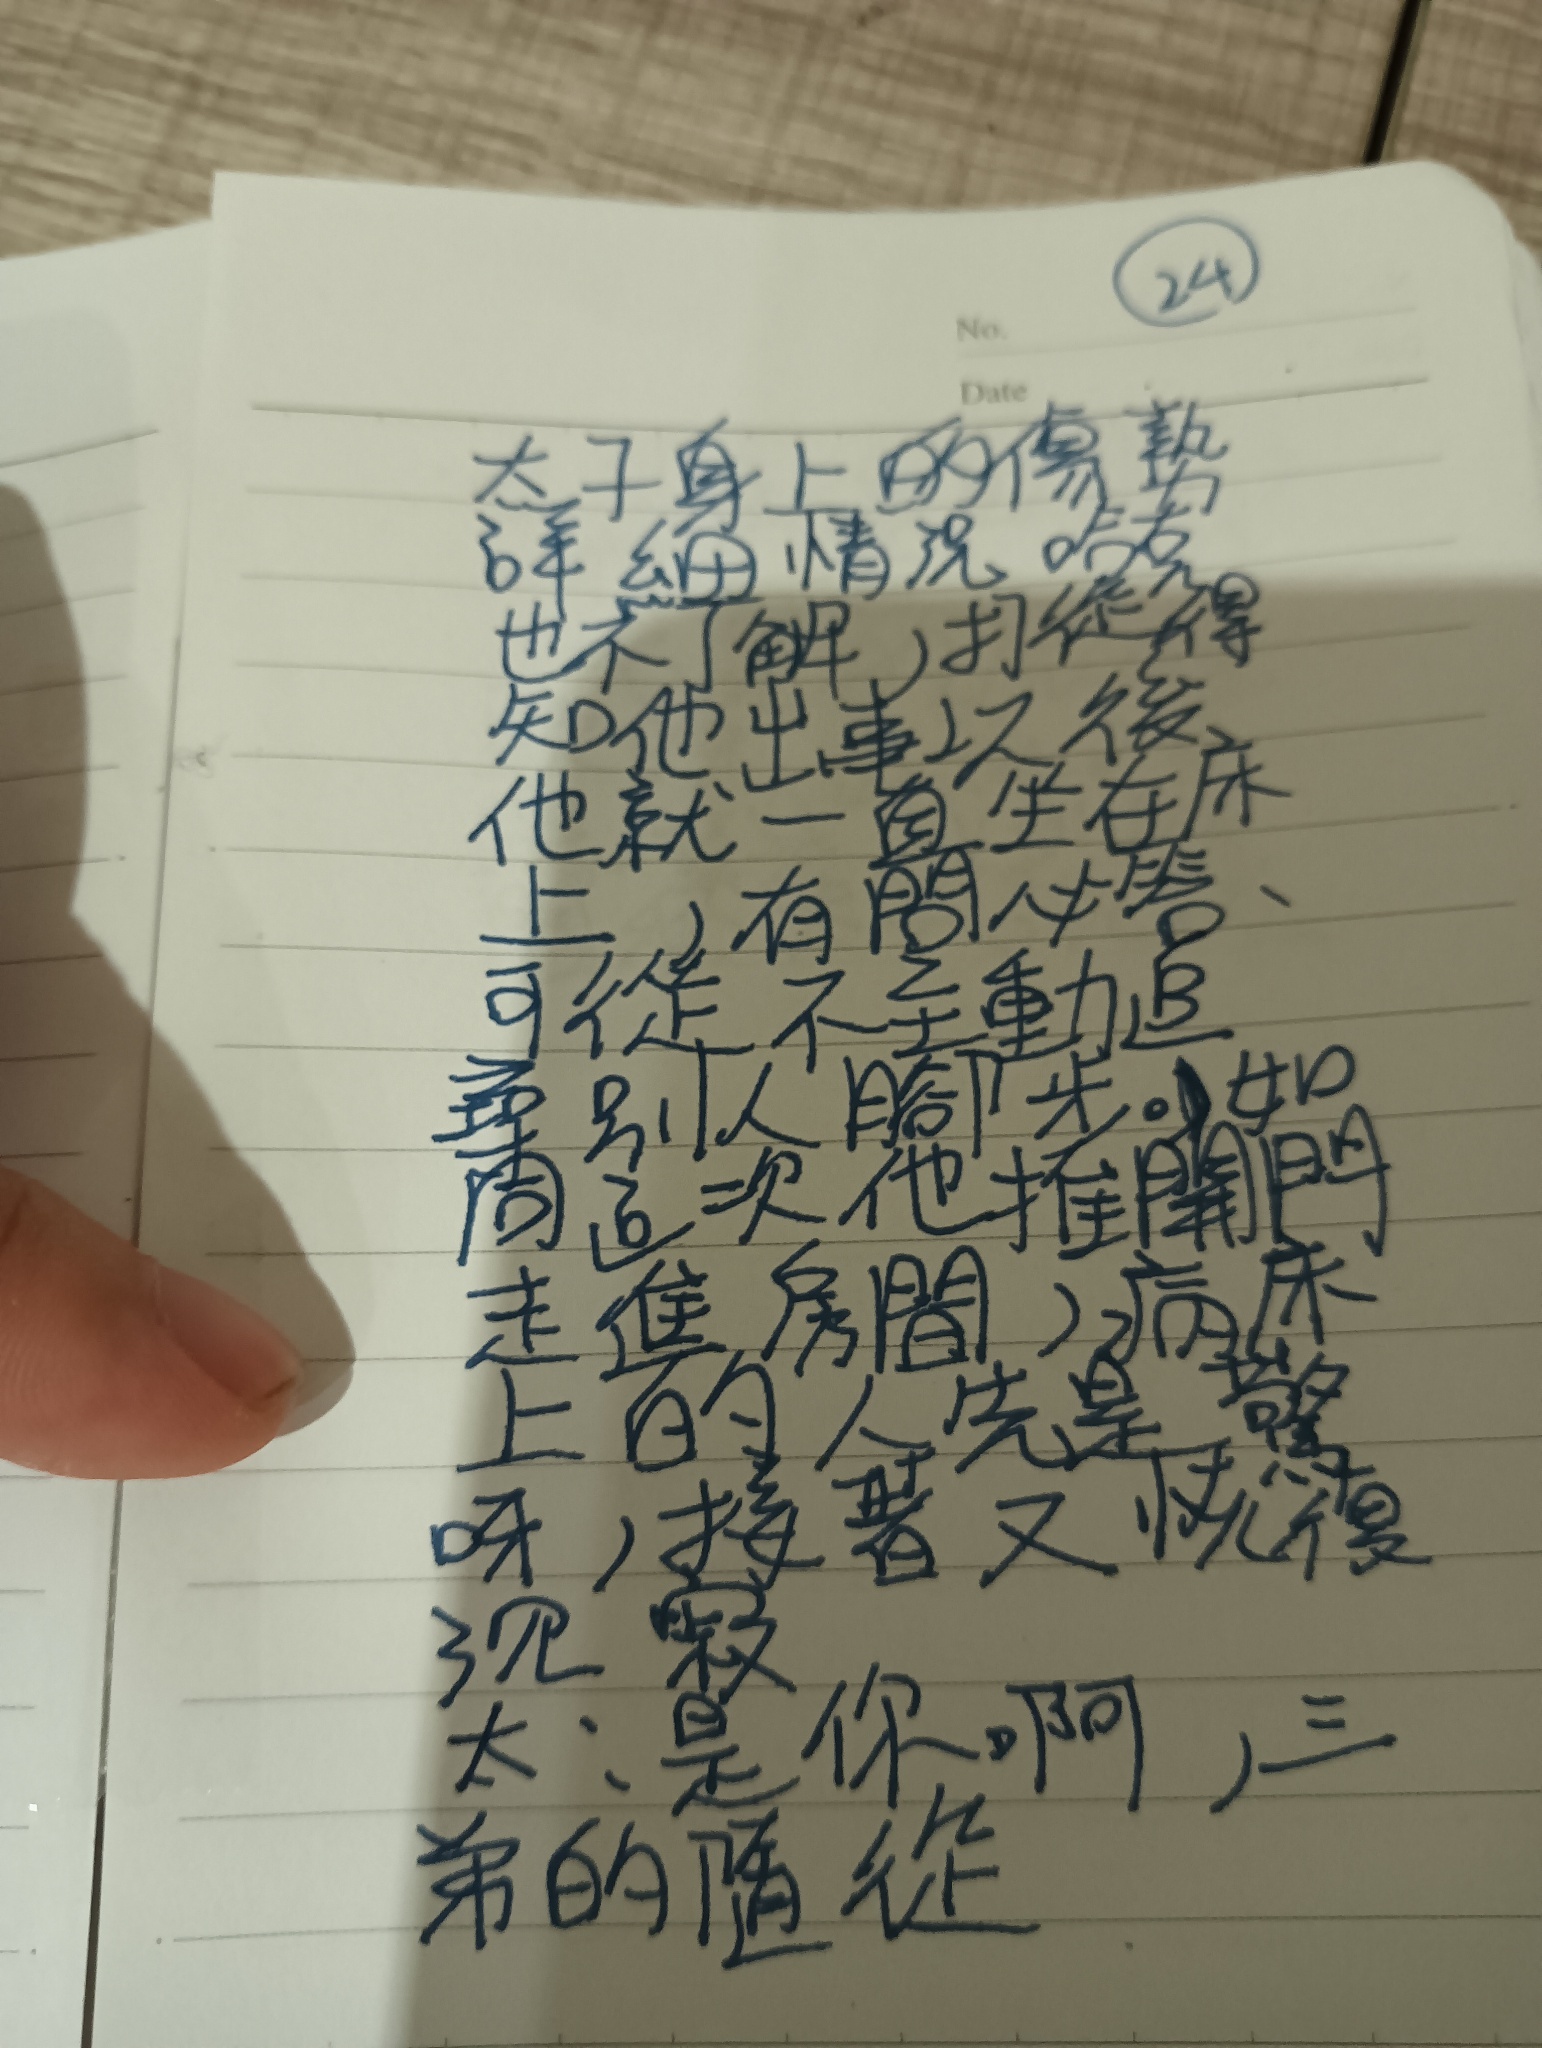 24
No.
Date
太子身上的傷勢
詳細情況哈克
也不了解,打從得
知他出事以後
他就一直坐在床
上,有問必答、
可從不主動追
尋別人腳步。如
同這次他推開門
走進房間,病床
上的人先是驚
呀,接著又恢復
沉寂
太:是你啊,三
弟的隨從